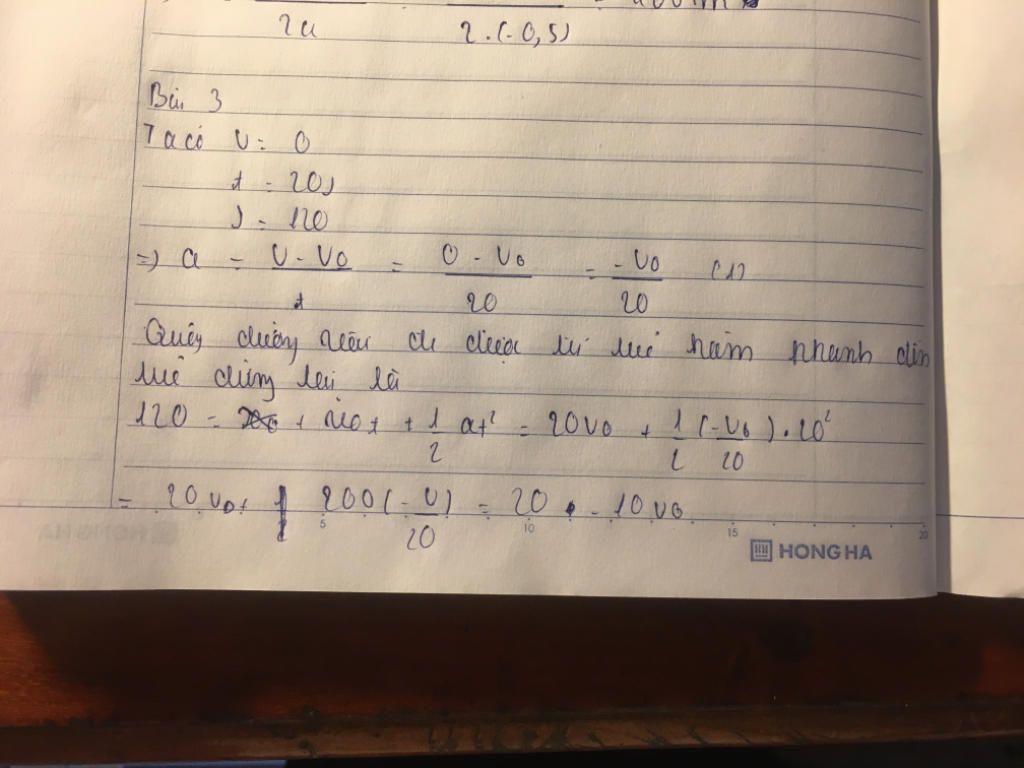 2a 2.(-0,5)
Bài 3
Ta có v = 0
t = 20s
s = 120
=> a = \frac{v - v0}{t} = \frac{0 - v0}{20} = \frac{-v0}{20} (1)
Quãng đường tàu đi được từ lúc hãm phanh đến
lúc dừng lại là
120 = + v0t + \frac{1}{2} at² = 20v0 + \frac{1}{2} (\frac{-v0}{20}).20²
= 20v0+ 200(\frac{-v}{20}) = 20 - 10v0
5 10 15 20
HONG HA